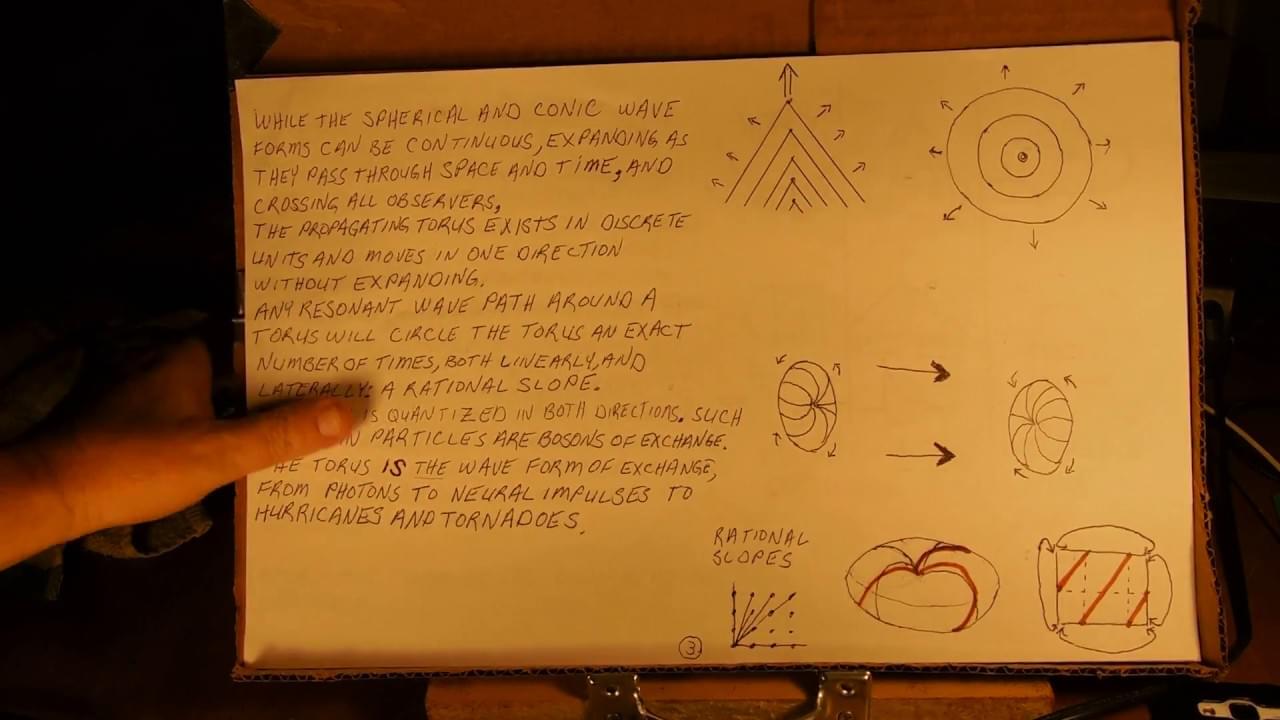 WHILE THE SPHERICAL AND CONIC WAVE
FORMS CAN BE CONTINUOUS, EXPANDING AS
THEY PASS THROUGH SPACE AND TIME, AND
CROSSING ALL OBSERVERS,
THE PROPAGATING TORUS EXISTS IN DISCRETE
UNITS AND MOVES IN ONE DIRECTION
WITHOUT EXPANDING.
ANY RESONANT WAVE PATH AROUND A
TORUS WILL CIRCLE THE TORUS AN EXACT
NUMBER OF TIMES, BOTH LINEARLY, AND
LATERALLY: A RATIONAL SLOPE.
IS QUANTIZED IN BOTH DIRECTIONS. SUCH
PARTICLES ARE BOSONS OF EXCHANGE.
THE TORUS IS THE WAVE FORM OF EXCHANGE,
FROM PHOTONS TO NEURAL IMPULSES TO
HURRICANES AND TORNADOES.
RATIONAL
SLOPES
3